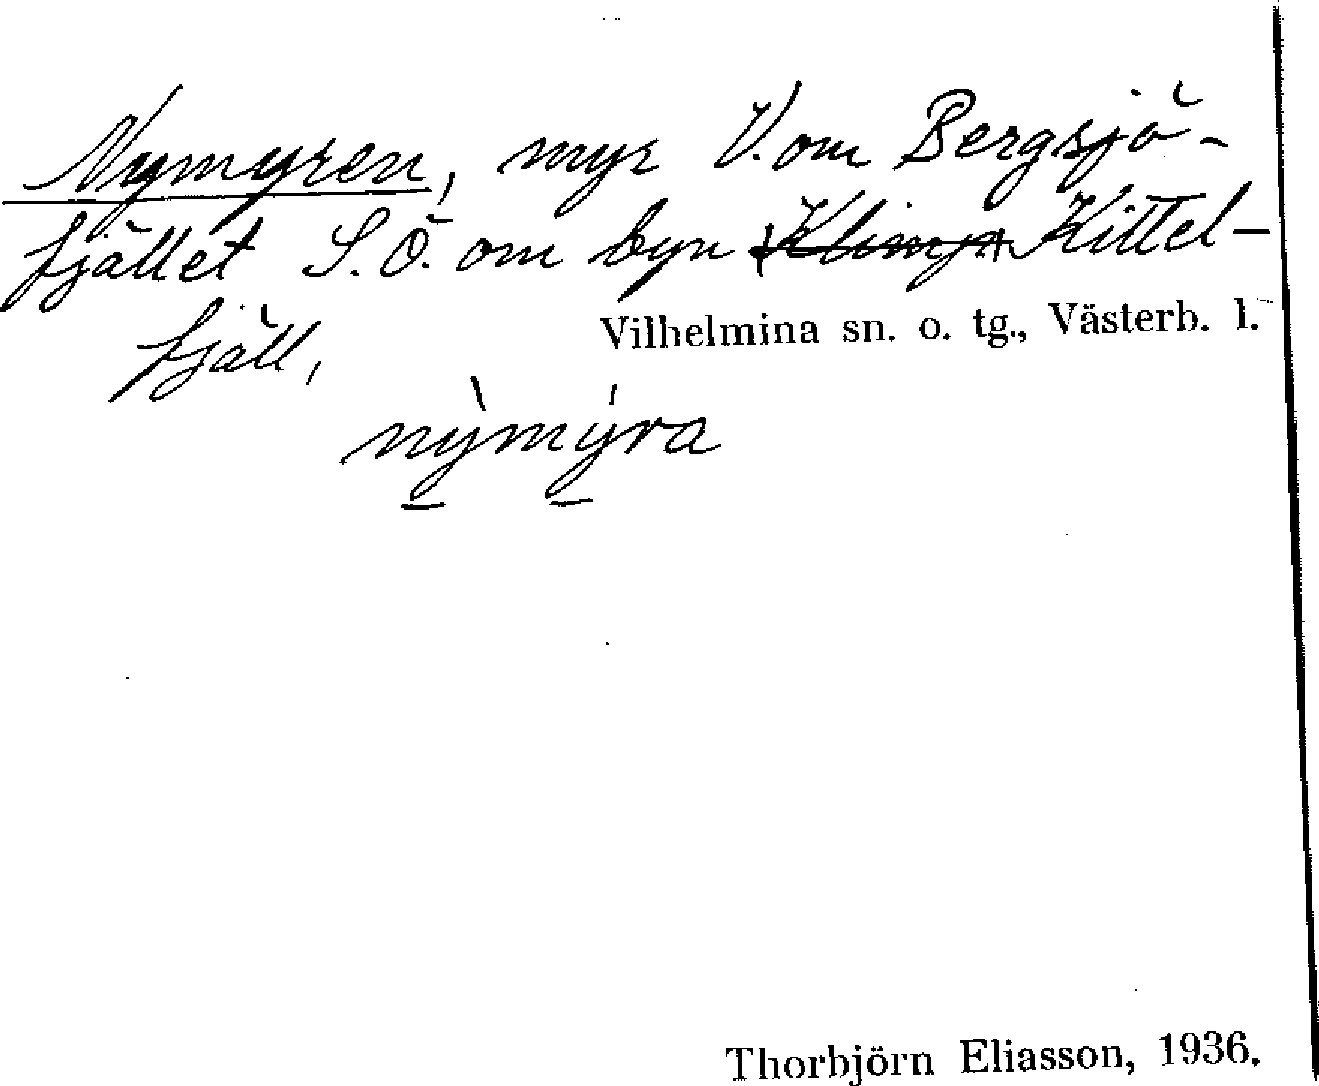 Nymyren, myr V. om Bergsjö-
fjället S.Ö. om byn Klimpn Kittel-
fjäll, Vilhelmina sn. o. tg., Västerb. l.
nỳmýra
Thorbjörn Eliasson, 1936.